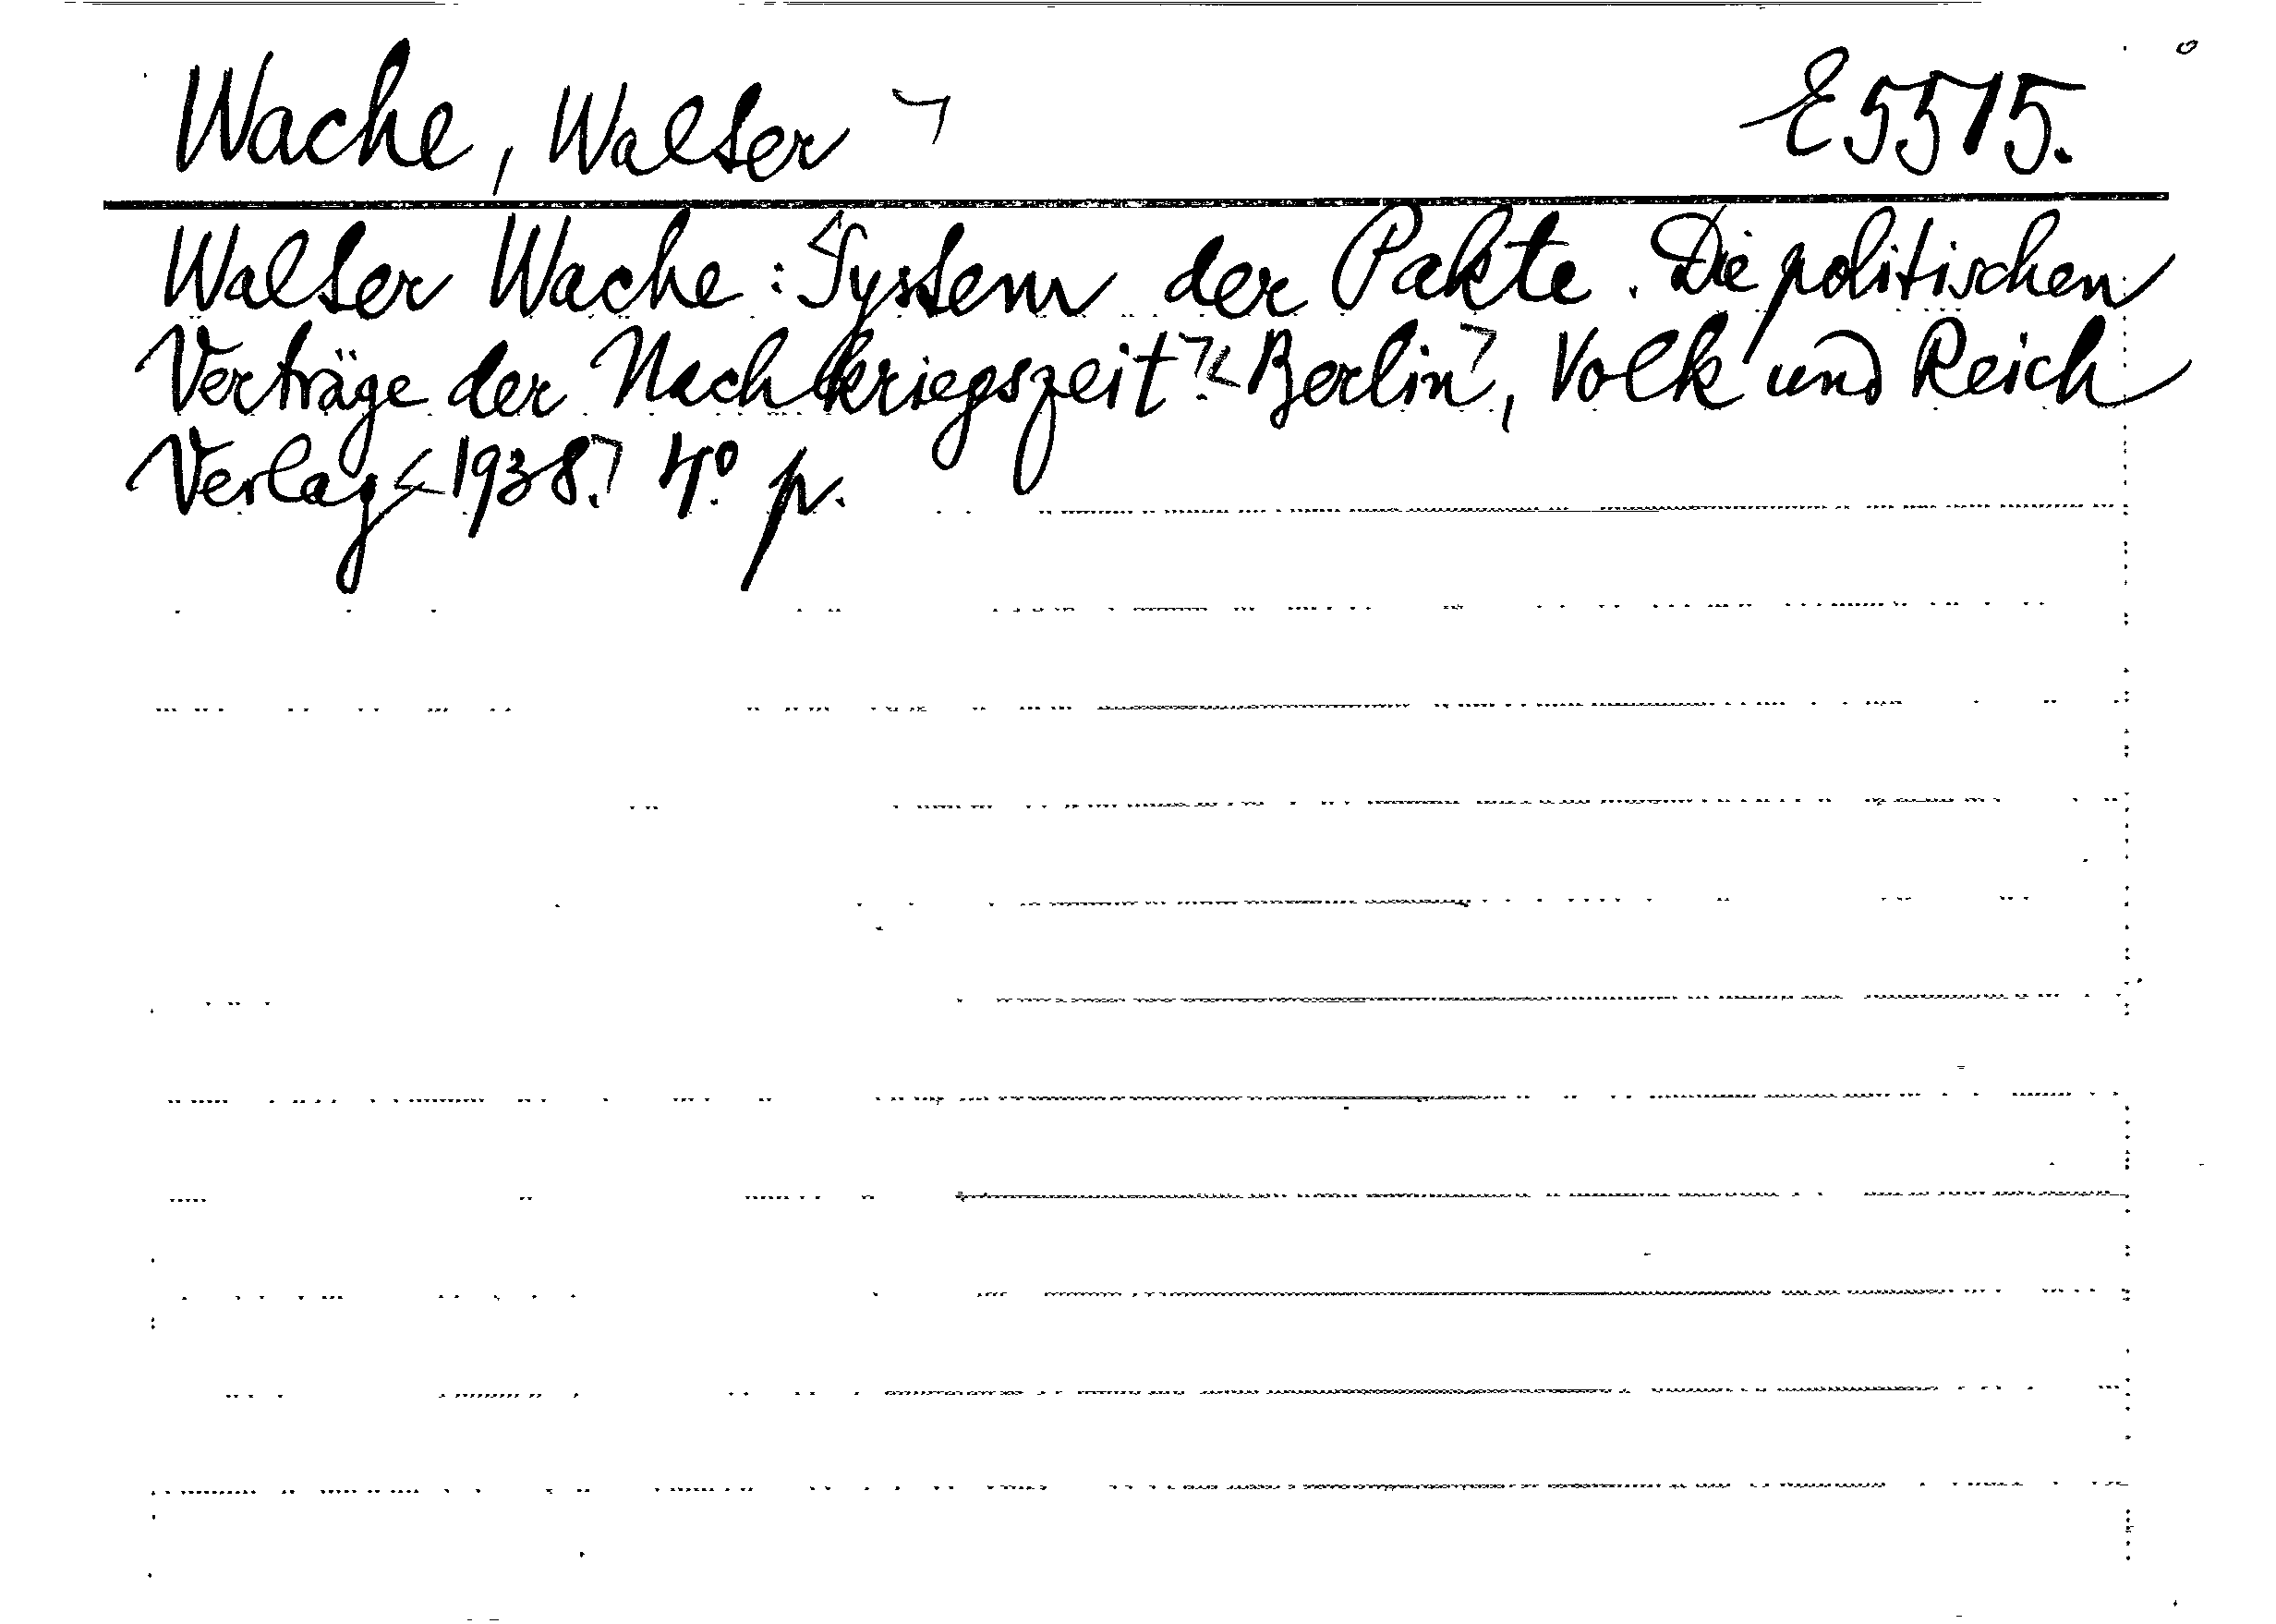 Wache, Walter E5515.
Walter Wache: System der Pakte. Die politischen
Verträge der Nachkriegszeit. Berlin, Volk und Reich
Verlag 1938. 4° p.